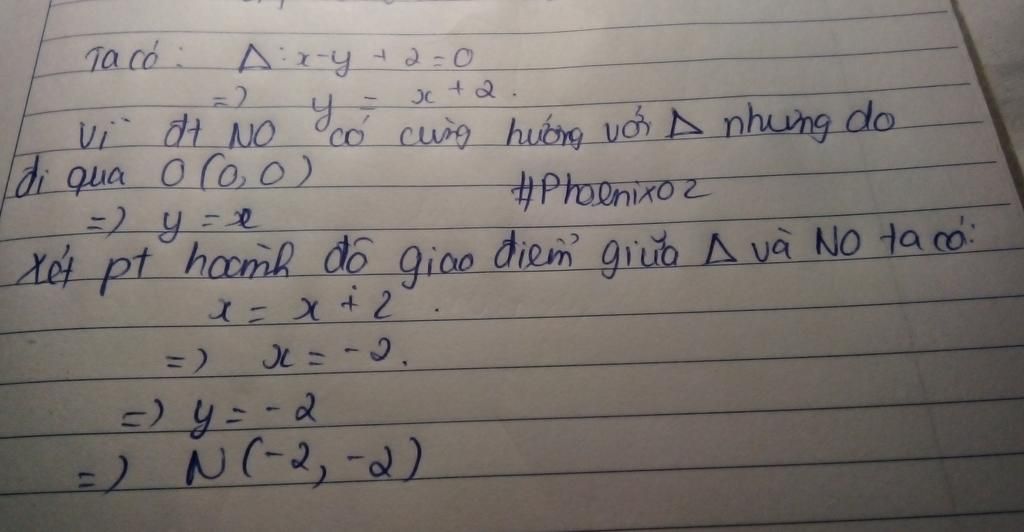 Ta có: Δ: x-y + 2 = 0
=) y = x + 2.
Vì đt NO có cùng hướng với Δ nhưng do
đi qua O(0,0)
#Phoenix02
=) y = x
Xét pt hoành độ giao điểm giữa Δ và NO ta có:
x = x + 2.
=) x = -2.
=) y = -2
=) N(-2, -2)